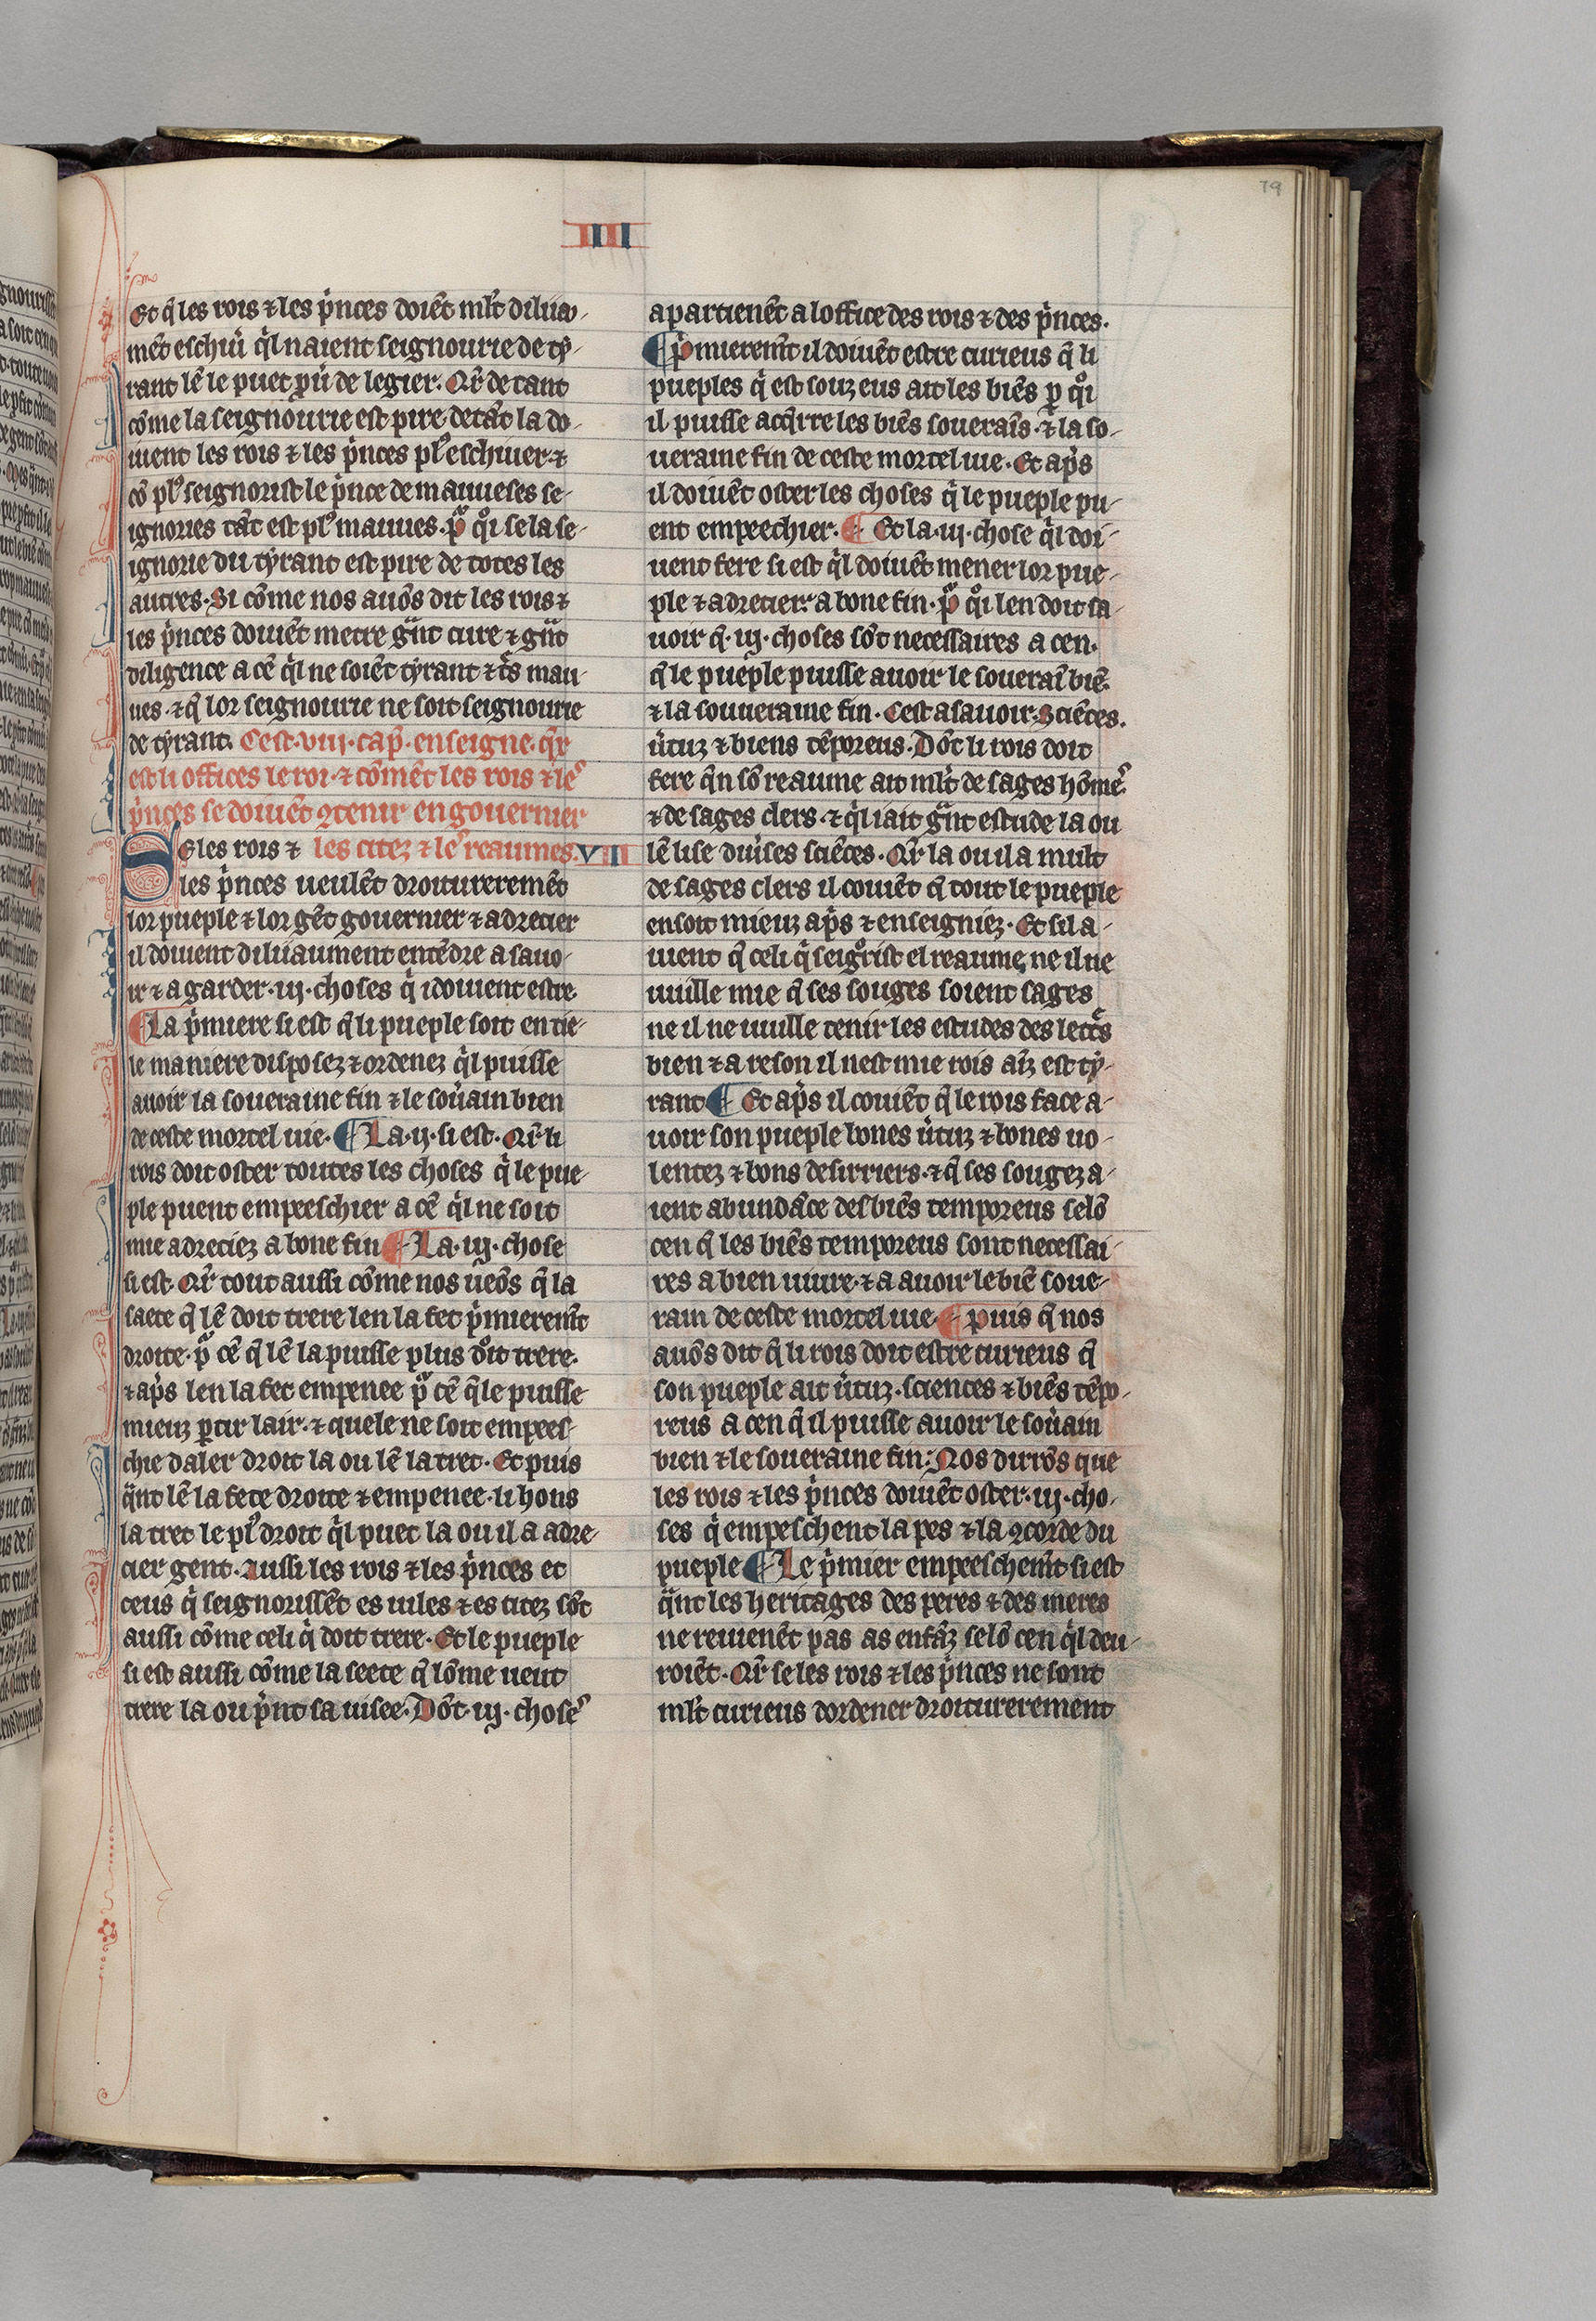 79
IIII
Et q̃ les rois ⁊ les p̾nces doiẽt ml̃t diliia-
mẽt eschiu̾ q̾l naient seignourie de ty-
rant lẽ le puet pͬu̾ de legier. Qr̃ de tant
cõme la seignourie est pire de tãt la do-
iuent les rois ⁊ les p̾nces pl᷒ eschiuer ⁊
cõ pl᷒ seignorist le p̾nce de mauueses se-
ignories tãt est pl᷒ mauues. pͣ qͦi se la se-
ignorie du tyrant est pire de totes les
autres. Si cõme nos auõs dit les rois ⁊
les p̾nces doiuẽt metre gͣnt cure ⁊ gͣnt
diligence a cẽ q̾l ne soiẽt tyrant ⁊ t̾s mau-
ues. ⁊ q̃ lor seignourie ne soit seignourie
de tyrant. Cest. viii. cap̃. enseigne. q̃x
est li offices le roi. ⁊ cõmẽt les rois ⁊ le᷒
p̾nces se doiuẽt ꝯtenir en gouerner
Se les rois ⁊ les citez ⁊ le᷒ reaumes. VIII
les p̾nces ueulẽt droiturieremẽt
lor pueple ⁊ lor gẽt gouerner ⁊ adrecier
il doiuent diliiaument entẽdre a sauo-
ir ⁊ a garder. iij. choses q̾ i doiuent estre
¶ La p̾miere si est q̃ li pueple soit en tie-
le maniere disposez ⁊ ordenez q̾l puisse
auoir la soueraine fin ⁊ le sou̾ain bien
de ceste mortel uie. ¶ La. ij. si est. Qr̃ li
rois doit oster toutes les choses q̾ le pue-
ple puent empeeschier a cẽ q̾l ne soit
mie adreciez a bone fin ¶ La. iij. chose
si est. Qr̃ tout aussi cõme nos ueõs q̃ la
saete q̃ lẽ doit trere len la fet p̾mieremt̃
droite. pͣ cẽ q̃ lẽ la puisse plus dͦit trere.
⁊ ap̾s len la fet empenee pͣ cẽ q̃le puisse
mieuz ꝑcir lair. ⁊ quele ne soit empees-
chie daler droit la ou lẽ la tret. Et puis
qͣnt lẽ la fete droite ⁊ empenee. li hons
la tret le pl᷒ droit q̾l puet la ou il a adre-
cier gent. Aussi les rois ⁊ les p̾nces et
ceus q̾ seignorissẽt es uiles ⁊ es citez sõt
aussi cõme celi q̾ doit trere. Et le pueple
si est aussi cõme la seete q̃ lõme ueut
trere la ou p̾nt sa uisee. Dõt. iij. chose᷒
apartienẽt a loffice des rois ⁊ des p̾nces.
¶ P̾mieremt̃ il doiuẽt estre curieus q̃ li
pueples q̾ est souz eus ait les biẽs ꝑ qͦi
il puisse acq̾rre les biẽs souerais̃. ⁊ la so-
ueraine fin de ceste mortel uie. Et ap̾s
il doiuẽt oster les choses q̾ le pueple pu-
ent empeechier. ¶ Et la. iij. chose q̾l doi-
uent fere si est q̾l doiuẽt mener lor pue-
ple ⁊ adrecier a bone fin. pͣ qͦi len doit sa-
uoir q̃. iij. choses sõt necessaires a cen.
q̃ le pueple puisse auoir le souerai̾ biẽ.
⁊ la souueraine fin. Cest asauoir. Sciẽces.
u̾tuz ⁊ biens tẽporeus. Dõt li rois doit
fere q̃n sõ reaume ait ml̃t de sages hõme᷒
⁊ de sages clers. ⁊ q̾l i ait gͣnt estude la ou
lẽ lise diu̾ses sciẽces. Qr̃ la ou il a mult
de sages clers il couiẽt q̃ tout le pueple
en soit mieuz ap̾s ⁊ enseigniez. Et sil a-
uient q̃ celi q̾ seigͦrist el reaume, ne il ne
uuille mie q̃ ses souges soient sages
ne il ne uuille tenir les estudes des lett̾s
bien ⁊ a reson il nest mie rois aiz̃ est ty-
rant ¶ Et ap̾s il couiẽt q̃ le rois face a-
uoir son pueple bones u̾tuz ⁊ bones uo-
lentez ⁊ bons desirriers. ⁊ q̃ ses sougez a-
ient abundãce des biẽs temporeus selõ
cen q̃ les biẽs temporeus sont necessai-
res a bien uiure. ⁊ a auoir le biẽ soue-
rain de ceste mortel uie. ¶ Puis q̃ nos
auõs dit q̃ li rois doit estre curieus q̃
son pueple ait u̾tuz. sciences ⁊ biẽs tẽpo-
reus a cen q̃ il puisse auoir le sou̾ain
bien ⁊ le soueraine fin: Nos dirrõs que
les rois ⁊ les p̾nces doiuẽt oster. iij. cho-
ses q̾ empeschent la pes ⁊ la ꝯcorde du
pueple ¶ Le p̾mier empeeschemt̃ si est
qͣnt les heritages des peres ⁊ des meres
ne reuienẽt pas as enfãz selõ cen q̾l deu-
roiẽt. Qr̃ se les rois ⁊ les p̾nces ne sont
ml̃t curieus dordener droiturierement